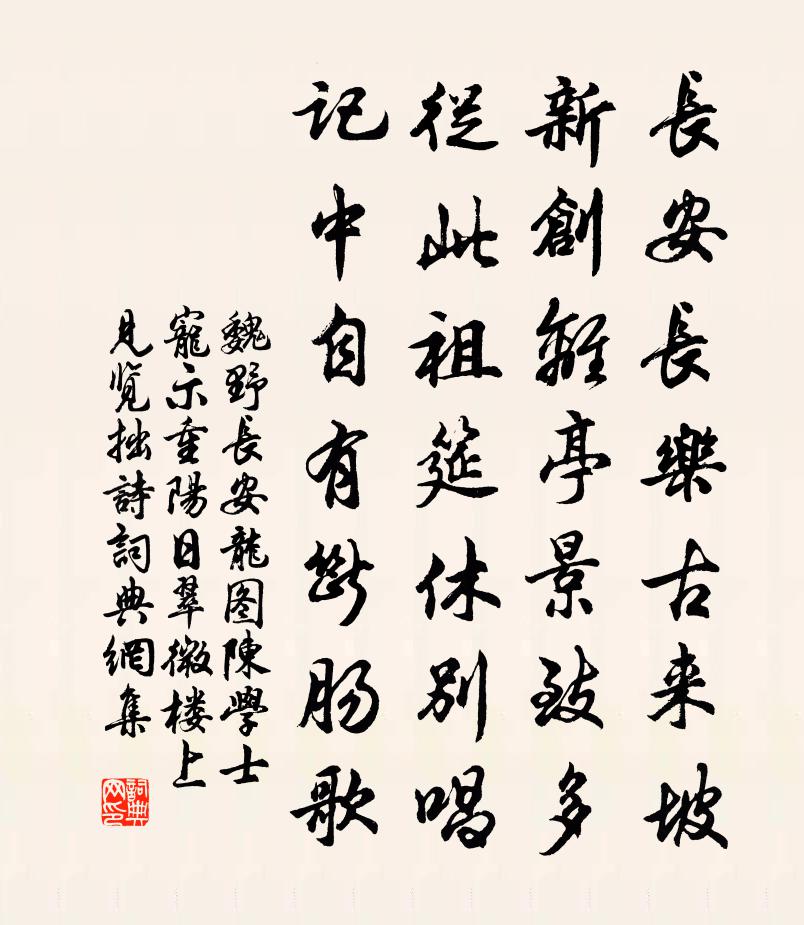 長安長樂古来坡
新創離亭景致多
從此祖筵休別唱
記中自有斷腸歌
魏野長安龍图陳學士
寵示重陽日翠微楼上
見覽拙詩詞典網集
詞典网印